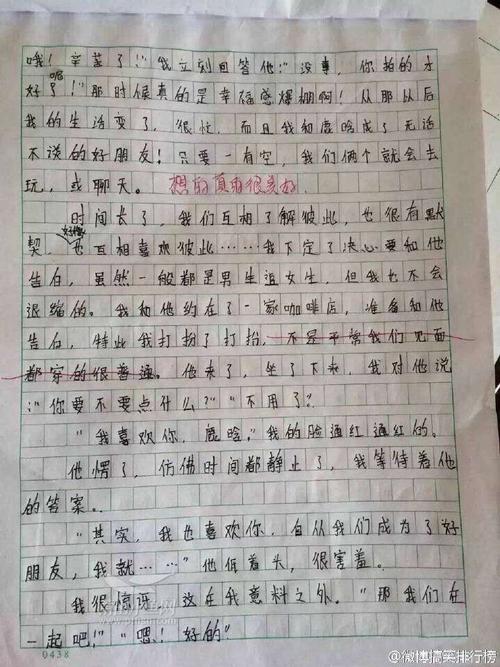 哦！辛苦了！"我立刻回答他："没事，你拍的才
好呢了！"那时候真的是幸福感爆棚啊！从那以后
我的生活变了，很忙，而且我和鹿晗成了无话
不说的好朋友！只要一有空，我们俩个就会去
玩，或聊天。 想的真有很美好
时间长了，我们互相了解彼此，也很有默
契，好像也互相喜欢彼此……我下定了决心要和他
告白，虽然一般都是男生追女生，但我也不会
退缩的。我和他约在了一家咖啡店，准备和他
告白，特此我打扮了打扮，不是平常我们见面
都穿的很普通。他来了，坐了下来，我对他说
："你要不要点什么？""不用了。"
"我喜欢你，鹿晗。"我的脸通红通红的。
他愣了，仿佛时间都静止了，我等待着他
的答案。
"其实，我也喜欢你，自从我们成为了好
朋友，我就……"他低着头，很害羞。
我很惊讶，这在我意料之外。"那我们在
一起吧！""嗯！好的"
0438
@微博搞笑排行榜